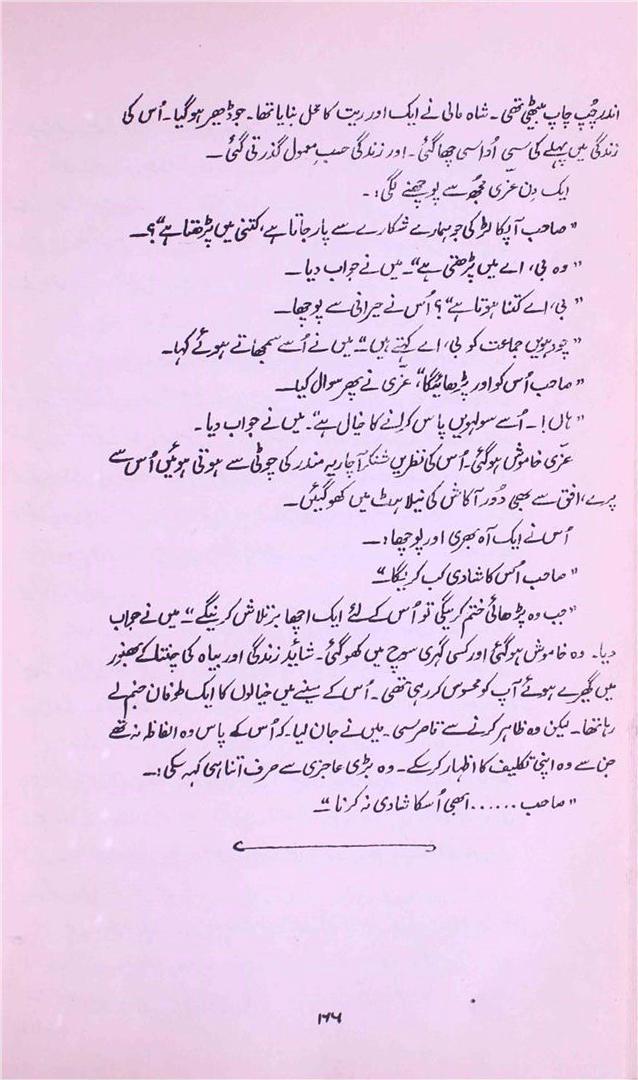 اندر چُپ چاپ بیٹھی تھی۔ شاہ مالی نے ایک اور ریت کا محل بنایا تھا۔ جو ڈھیر ہو گیا۔ اُس کی
زندگی میں پہلے کی سی اُداسی چھا گئی۔ اور زندگی حسبِ معمول گذرتی گئی۔
ایک دِن عزّی مجھ سے پوچھنے لگی:۔
"صاحب آپکا لڑکی جو ہمارے شکارے سے پار جاتا ہے، کتنی میں پڑھتا ہے"؟۔
"وہ بی، اے میں پڑھتی ہے"۔ میں نے جواب دیا۔
"بی، اے کتنا ہوتا ہے"؟ اُس نے حیرانی سے پوچھا۔
"چودہویں جماعت کو بی، اے کہتے ہیں"۔ میں نے اُسے سمجھاتے ہوئے کہا۔
"صاحب اُس کو اور پڑھائیگا"، عزّی نے پھر سوال کیا۔
"ہاں!۔ اُسے سولہویں پاس کرانے کا خیال ہے"۔ میں نے جواب دیا۔
عزّی خاموش ہو گئی۔ اُس کی نظریں شنکر آچاریہ مندر کی چوٹی سے ہوتی ہوئیں اُس سے
پرے، افق سے بھی دُور آکاش کی نیلاہٹ میں کھو گئیں۔
اُس نے ایک آہ بھری اور پوچھا:۔
"صاحب اُس کا شادی کب کریگا"۔
"جب وہ پڑھائی ختم کریگی تو اُس کے لئے ایک اچھا بَر تلاش کرینگے"۔ میں نے جواب
دیا۔ وہ خاموش ہو گئی اور کسی گہری سوچ میں کھو گئی۔ شائد زندگی اور بیاہ کی چنتا کے بھنور
میں گھِرے ہوئے آپ کو محسوس کر رہی تھی۔ اُس کے سینے میں خیالوں کا ایک طوفان جنم لے
رہا تھا۔ لیکن وہ ظاہر کرنے سے قاصر سی۔ میں نے جان لیا۔ کہ اُس کے پاس وہ الفاظ نہ تھے
جن سے وہ اپنی تکلیف کا اظہار کر سکے۔ وہ بڑی عاجزی سے صرف اتنا ہی کہہ سکی:۔
"صاحب...... ابھی اُسکا شادی نہ کرنا"۔
۱۶۶